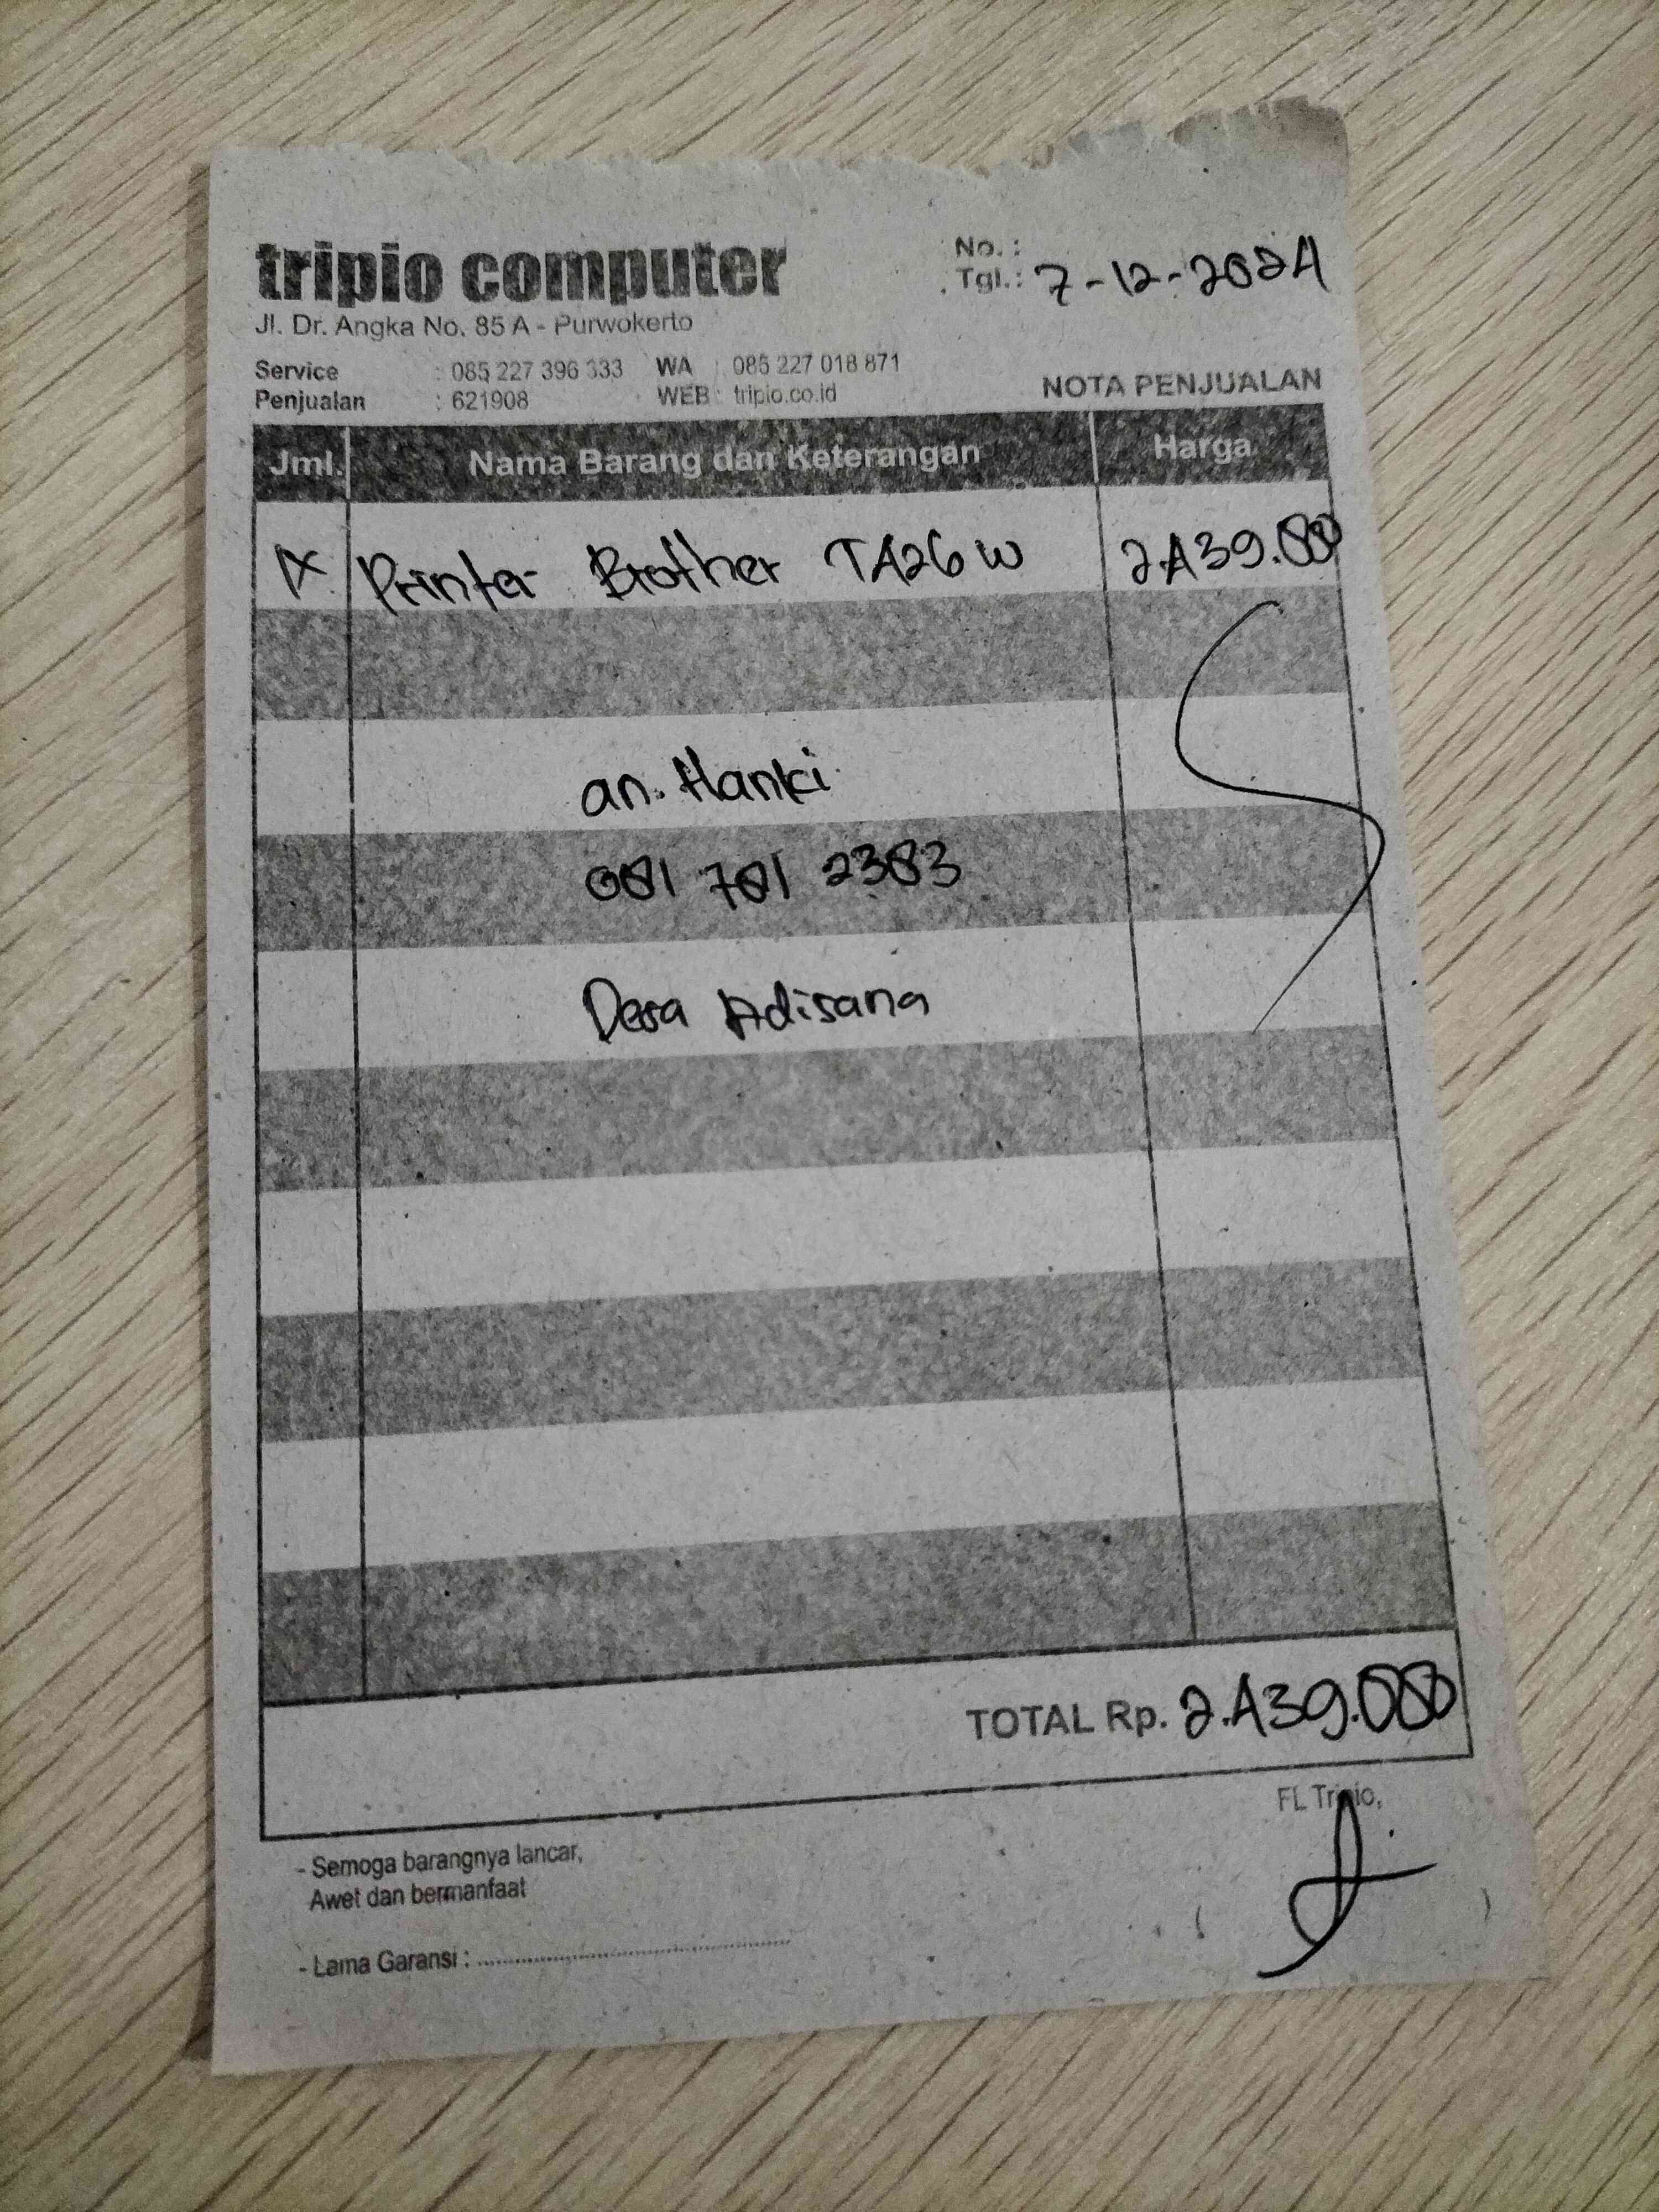 tripio computer
Jl. Dr. Angka No. 85 A - Purwokerto
No. :
Tgl. : 7-12-2024
Service : 085 227 396 333 WA : 085 227 018 871
Penjualan : 621908 WEB : tripio.co.id
NOTA PENJUALAN
Jml. Nama Barang dan Keterangan Harga
1x Printer Brother T426W 2.439.000
an. Hanki
081 781 2383
Desa Adisana
TOTAL Rp. 2.439.000
FL Tripio,
- Semoga barangnya lancar,
Awet dan bermanfaat
- Lama Garansi : ........................................